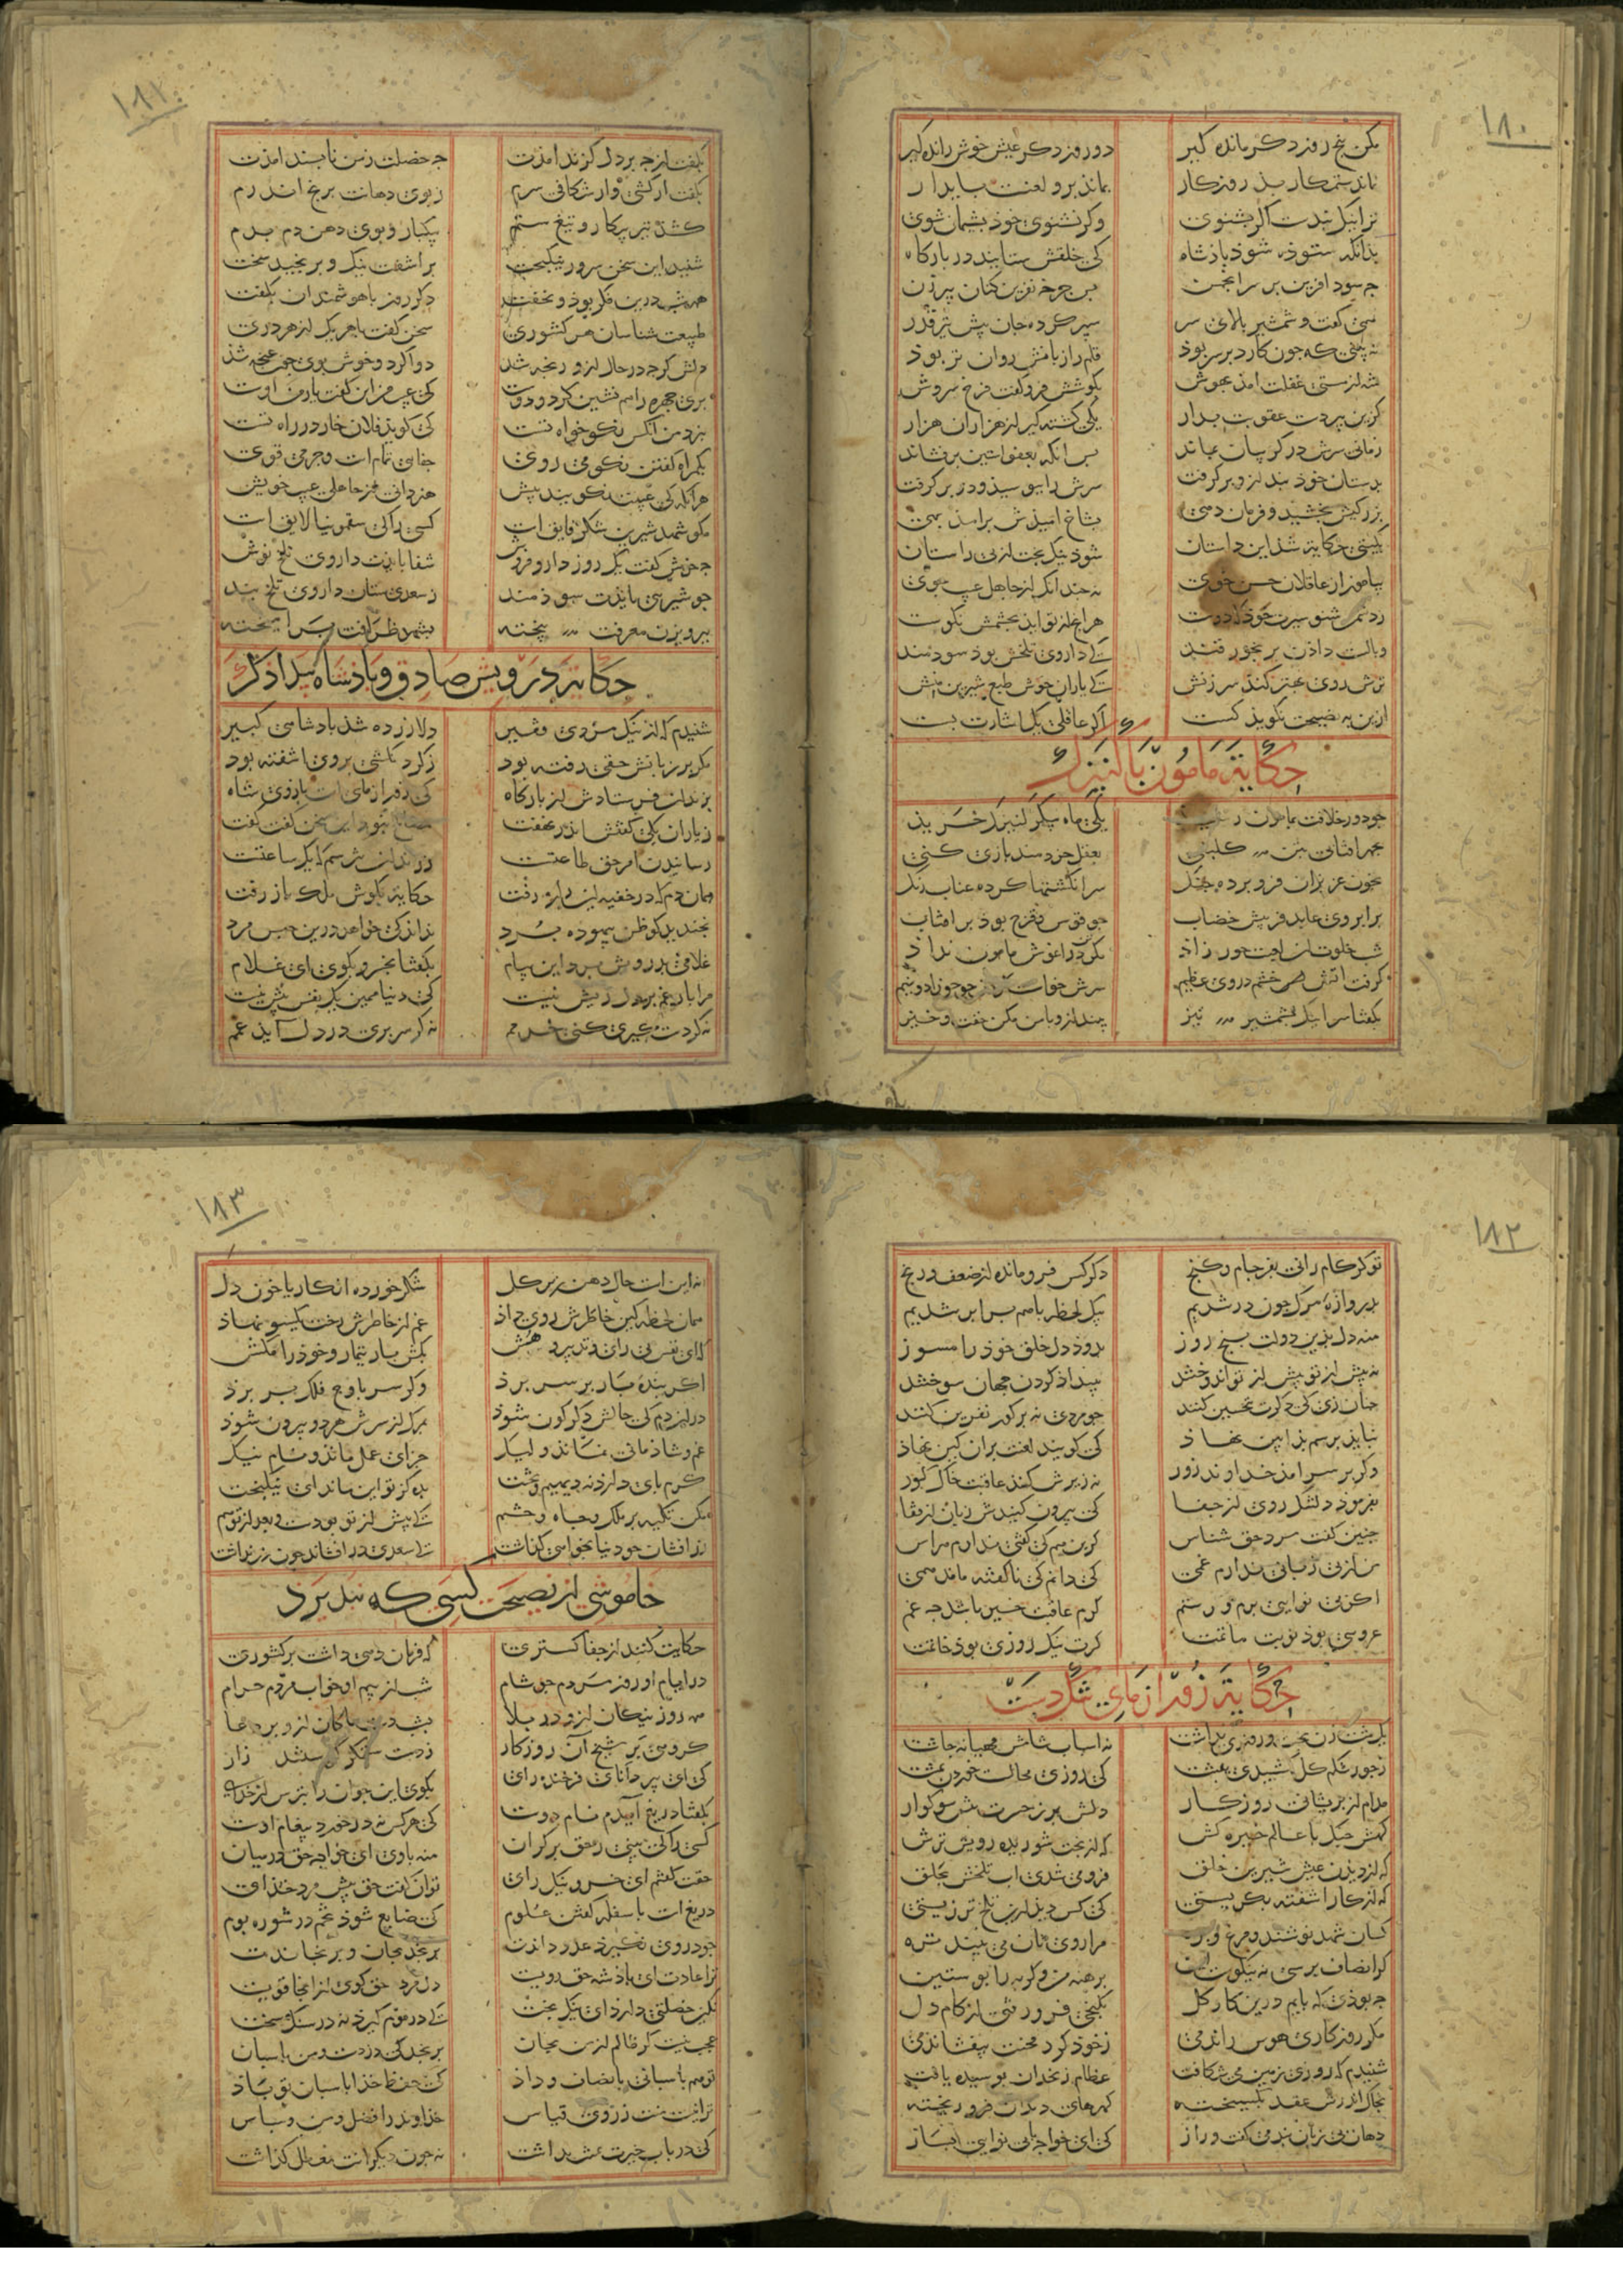 ١٨٠
مکن پنج روز دکر مانده کیر دو روز دکر عیش خوش رانده کیر
نماند ستمکار بذ روزکار بماند برو لعنت پایدار
ترا نیک پندست اکر بشنوی وکر نشنوی خوذ پشیمان شوی
بذانکه ستوده شوذ باذشاه کی خلقش ستایند در بارکاه
جه سود افرین بر سر انجمن پس جرخه نفرین کنان پیرزن
همی کفت و شمشیر بالای سر سپر کرده جان پیش تیر قدر
نه بینی که جون کارد بر سر بوذ قلم را زبانش روان تر بوذ
شه از مستی غفلت امذ بهوش بکوشش فرو کفت فرخ سروش
کزین پیر دست عقوبت بدار یکی کشته کیر از هزاران هزار
زمانی سرش در کریبان بماند پس انکه بعفو استین برفشاند
بدستان خوذ بند ازو بر کرفت سرش را ببوسیذ و در بر کرفت
بزرکیش بخشید و فرمان دهی بشاخ امیذش برامذ بهی
بکیتی حکایت شذ این داستان شوذ نیک بخت از پی راستان
بیاموز از عاقلان حسن خوی نه جندانکه از جاهل عیب جوی
ز دشمن شنو سیرت خوذ که دوست هر انچ از تو اید بچشمش نکوست
وبالست داذن برنجور قند کی داروی تلخش بوذ سودمند
ترش روی بهتر کند سرزنش کی یاران خوش طبع شیرین منش
ازین به نصیحت نکویذ کست اکر عاقلی یک اشارت بست
حکایة مأمون با کنیزک
جو دور خلافت بمأمون رسید یکی ماه پیکر کنیزک خرید
بچهر افتابی بتن کلبنی بعقل خردمند بازی کنی
بخون عزیزان فرو برده جنک سر انکشتها کرده عناب رنک
بر ابروی عابد فریبش خضاب جو قوس قزح بوذ بر افتاب
شب خلوت ان لعبت حور زاذ مکر تن در اغوش مامون نداذ
کرفت اتش خشم در وی عظیم سرش خواست کردن جو جوزا دو نیم
بکفتا سر اینک بشمشیر تیز بینداز و با من مکن خفت و خیز
١٨١
بکفت از جه بر دل کزند امذت جه خصلت ز من ناپسند امذت
بکفت ار کشی ور شکافی سرم ز بوی دهانت برنج اندرم
کشد تیر پیکار و تیغ ستم بیکبار و بوی دهن دم بدم
شنید این سخن سرور نیکبخت براشفت نیک و برنجید سخت
همه شب درین فکر بوذ و نخفت دکر روز با هوشمندان بکفت
طبیعت شناسان هر کشوری سخن کفت با هر یک از هر دری
دلش کرجه در حال ازو رنجه شذ دوا کرد و خوش بوی جون غنجه شذ
پری جهره را هم نشین کرد و دوست کی عیب مرا این کفت یار من اوست
بنزد من انکس نکو خواه تست کی کویذ فلان خار در راه تست
بکمراه کفتن نکو می روی جفایی تمام است و جرمی قوی
هر انکه کی عیبت نکویند پیش هنر دانی از جاهلی عیب خویش
مکو شهد شیرین شکر فایق است کسی را کی سقمونیا لایق است
جه خوش کفت یک روز دارو فروش شفا بایدت داروی تلخ نوش
جو شربتی بایذت سوذمند ز سعدی ستان داروی تلخ بند
ببرویزن معرفت بیخته بشهد ظرافت بر امیخته
حکایة درویش صادق و باذشاه بیدادکر
شنیدم که از نیک مردی فقیر دل ازرده شذ بادشاهی کبیر
مکر بر زبانش حقی رفته بود ز کردن کشی بروی اشفته بود
بزندان فرستادش از بارکاه کی زور ازمای است بازوی شاه
ز یاران یکی کفتش اندر نهفت مصالح نبود این سخن کفت کفت
رسانیدن امر حق طاعتست ز زندان نترسم که یک ساعتست
همان دم که در خفیه این راز رفت حکایت بکوش ملک باز رفت
بخندید کو ظن بیهوده برد نداند کی خواهد درین حبس مرد
غلامی بدرویش برد این پیام بکفتا بخسرو بکوی ای غلام
مرا بار غم بر دل ریش نیست کی دنیا همین یک نفس بیش نیست
نه کر دستکیری کنی خرمم نه کر سر بری در دل آیذ غمم
١٨٢
تو کر کام رانی بفرجام و کنج دکر کس فرومانده از ضعف و رنج
بدروازه مرک جون در شدیم بیک لحظه با هم برابر شدیم
منه دل بذین دولت پنج روز بدود دل خلق خوذ را مسوز
نه پیش از تو بیش از تو اندوختند ببیداذ کردن جهان سوختند
جنان زی کی ذکرت بتحسین کنند جو مردی نه بر کور نفرین کنند
نبایذ برسم بذ ایین نهاذ کی کویند لعنت بران کین نهاذ
وکر بر سر امذ خداوند زور نه زیرش کند عاقبت خاک کور
بفرموذ دلتنک روی از جفا کی بیرون کنندش زبان از قفا
جنین کفت مرد حق شناس کزین هم کی کفتی ندارم هراس
من از بی زبانی ندارم غمی کی دانم کی ناکفته داند همی
اکر بی نوایی برم ور ستم کرم عاقبت خیر باشد جه غم
عروسی بوذ نوبت ماتمت کرت نیک روزی بوذ خاتمت
حکایة زور ازمای تنکدست
یکی مشت زن بخت و روزی نداشت نه اسباب شامش مهیا نه جاشت
ز جور شکم کل کشیدی ببشت کی روزی محالست خوردن بمشت
مدام از پریشانی روزکار دلش پر ز حسرت تنش سوکوار
کهش جنک با عالم خیره کش که از بخت شوریده رویش ترش
که از دیذن عیش شیرین خلق فرو می شدی اب تلخش بحلق
که از کار اشفته بکریستی کی کس دید ازین تلخ تر زیستی
کسان شهد نوشند و مرغ و بره مرا روی نان می نبیند تره
کر انصاف پرسی نه نیکوست این برهنه من و کربه را پوستین
جه بوذی که پایم درین کار کل بکنجی فرو رفتی از کام دل
مکر روزکاری هوس راندمی ز خوذ کرد محنت بیفشاندمی
شنیدم که روزی زمین می شکافت عظام زنخدان پوسیده یافت
بخاک اندرش عقد بکسیخته کهرهای دندان فرو ریخته
دهان بی زبان پند می کفت و راز کی ای خواجه با بی نوایی بساز
١٨٣
نه این است حال دهن زیر کل شکر خورده انکار یا خون دل
همان لحظه کین خاطرش روی داذ غم از خاطرش رخت یکسو نهاذ
که ای نفس بی رای و تدبیر و هش بکش بار تیمار و خوذ را مکش
اکر بنده بار بر سر برذ وکر سر باوج فلک بر برذ
دران دم کی حالش دکرکون شوذ بمرک از سرش هر دو بیرون شوذ
غم و شاذمانی نماند ولیک جزای عمل ماند و نام نیک
کرم پای دارد نه دیهیم و تخت بده کز تو این ماند ای نیکبخت
مکن تکیه بر ملک و جاه و حشم کی پیش از تو بودست و بعد از تو هم
زر افشان جو دنیا بخواهی کذاشت کی سعدی در افشاند جون زر نداشت
خاموشی از نصیحت کسی که نپذیرد
حکایت کنند از جفا کستری که فرمان دهی داشت بر کشوری
در ایام او روز مردم جو شام شب از بیم او خواب مردم حرام
همه روز نیکان ازو در بلا بشب دست پاکان ازو بر دعا
کروهی بر شیخ آن روزکار ز دست ستمکر کرستند زار
کی ای پیر دانای فرخنده رای بکوی این جوان را بترس از خدای
بکفتا دریغ آیدم نام دوست کی هر کس نه در خورد پیغام اوست
کسی را کی بینی ز حق بر کران منه با وی ای خواجه حق در میان
حقت کفتم ای خسرو نیک رای توان کفت حق پیش مرد خذای
دریغ است با سفله کفتن علوم کی ضایع شوذ تخم در شوره بوم
جو در وی نکیرذ عدو داندت برنجد بجان و برنجاندت
ترا عادت ای باذشه حق رویست دل مرد حق کوی از اینجا قویست
نکین خصلتی دارذ ای نیک بخت کی در موم کیرذ نه در سنک سخت
عجب نیست کر ظالم از من بجان برنجد کی دزدست و من پاسبان
تو هم پاسبانی بانصاف و داذ کی حفظ خذا پاسبان تو باذ
ترا نیست منت ز روی قیاس خداوند را فضل و من و سپاس
کی در باب خیرت بخدمت بداشت نه جون دیکرانت معطل کذاشت